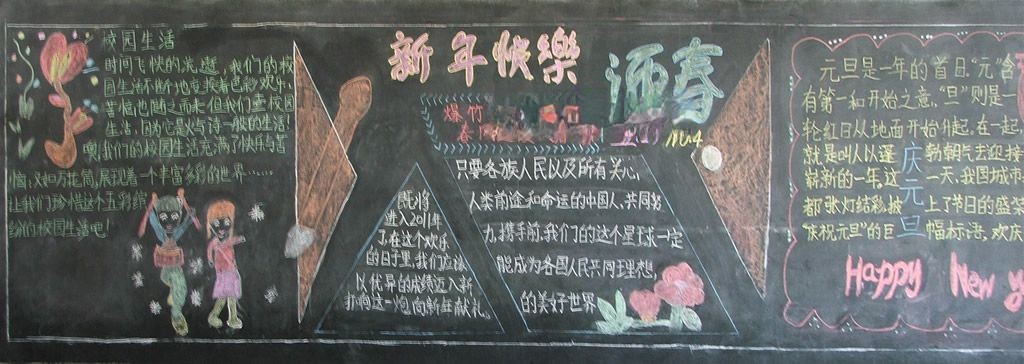 校园生活
时间飞快的流逝,我们的校
园生活不断地变换着色彩,欢乐,
苦恼也随之而来.但我们
生活,因为它是火与诗一般的生活!
噢,我们的校园生活充满了快乐与苦
恼,又如万花筒,展现着一个丰富多彩的世界……
让我们珍惜这个五彩缤
纷的校园生活吧!
新年快樂
迎春
爆竹
春
No4
既将
进入2011年
了,在这个欢乐
的日子里,我们应该
以优异的成绩迈入新
打响这一炮,向新年献礼。
只要各族人民以及所有关心
人类前途和命运的中国人,共同努
力,携手前,我们的这个星球一定
能成为各国人民共同理想,
的美好世界
元旦是一年的首日."元"含
有第一和开始之意,"旦"则是一
轮红日从地面开始升起,在一起,
就是叫人以蓬勃朝气去迎接
崭新的一年,这一天,我国城市
都张灯结彩,披上了节日的盛装
"庆祝元旦"的巨幅标语,欢庆
庆元旦
Happy New y